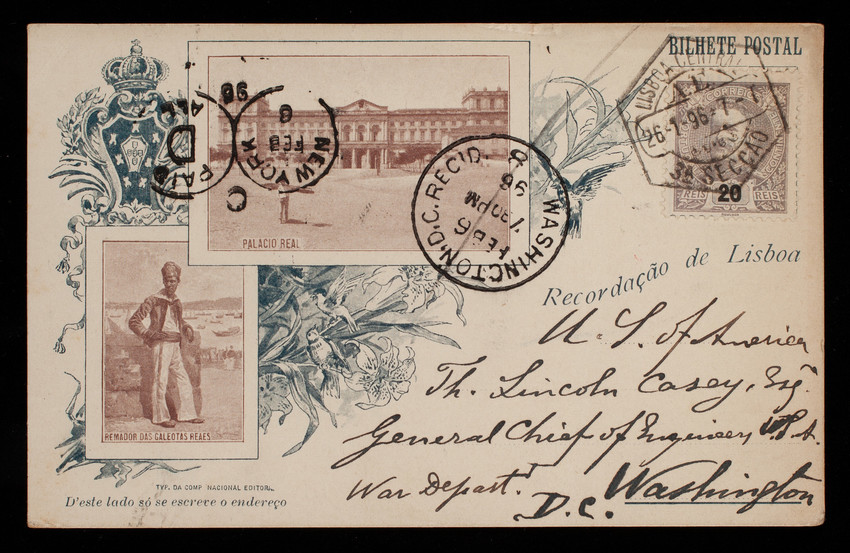 BILHETE POSTAL
LISBOA CENTRAL
26-1-96
3A SECÇÃO
CORREIO
20
REIS REIS
PAID
ALL
NEW YORK
FEB
6
96
C
WASHINGTON, D.C. REC'D.
FEB 6
7 30 PM
96
8
PALACIO REAL
Recordação de Lisboa
REMADOR DAS GALEOTAS REAES
U. S. of America
Th. Lincoln Casey, Esq.
General Chief of Engineer, U.S.A.
War Depart.t
D.C. Washington
TYP. DA COMP. NACIONAL EDITORA
D'este lado só se escreve o endereço